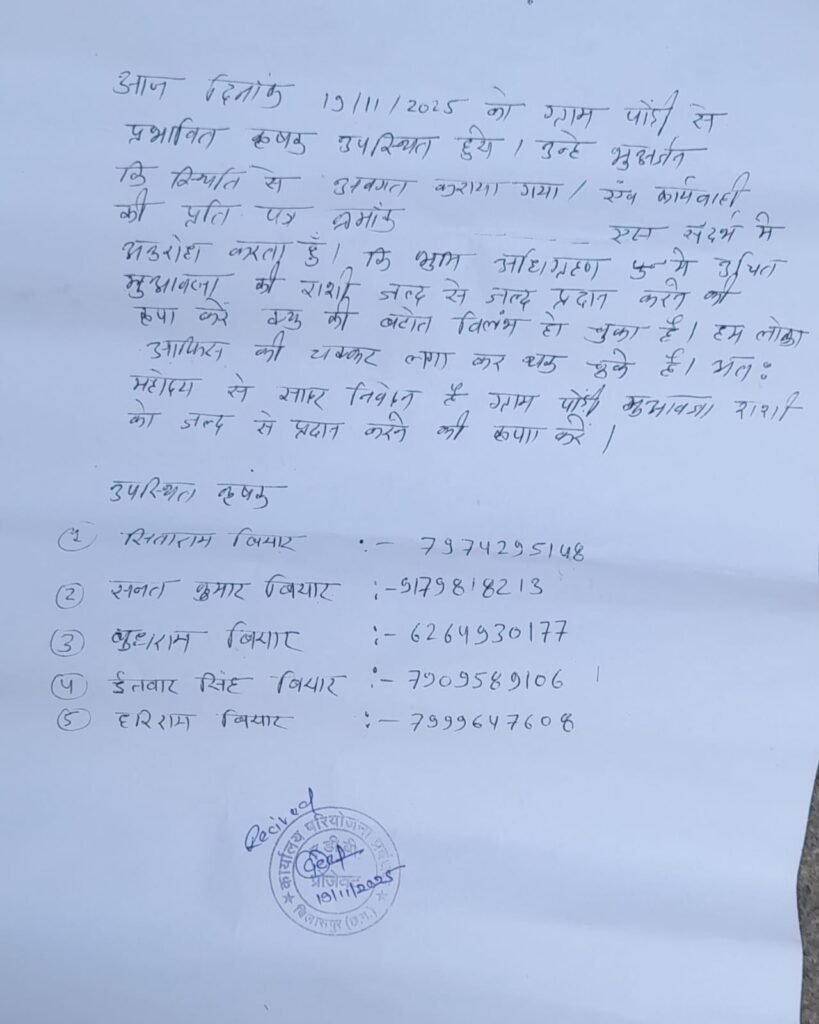 आज दिनांक 19/11/2025 को ग्राम पोंड़ी से
प्रभावित कृषक उपस्थित हुये। उन्हे भुअर्जन
कि स्थिति से अवगत कराया गया। एंव कार्यवाही
की प्रति पत्र क्रमांक संदर्भ में
अनुरोध करता हुँ। कि भुमि अधिग्रहण में उचित
मुआवजा की राशी जल्द से जल्द प्रदान करने की
कृपा करें क्यु की बहोत विलंभ हो चुका है। हम लोका
आफिस की चक्कर लगा कर थक चुके है। अतः
महोदय से सादर निवेदन है ग्राम पोंड़ी मुआवजा राशी
को जल्द से प्रदान करने की कृपा करें।
उपस्थित कृषक
1 सिताराम बियार :- 7974295148
2 सनत कुमार बियार :- 9179818213
3 बुधराम बियार :- 6264930177
4 ईतवार सिंह बियार :- 7909589106
5 हरिराम बियार :- 7999647608
Recived
कार्यालय परियोजना
प्रोजेक्ट
19/11/2025
बिलासपुर (छ.ग.)